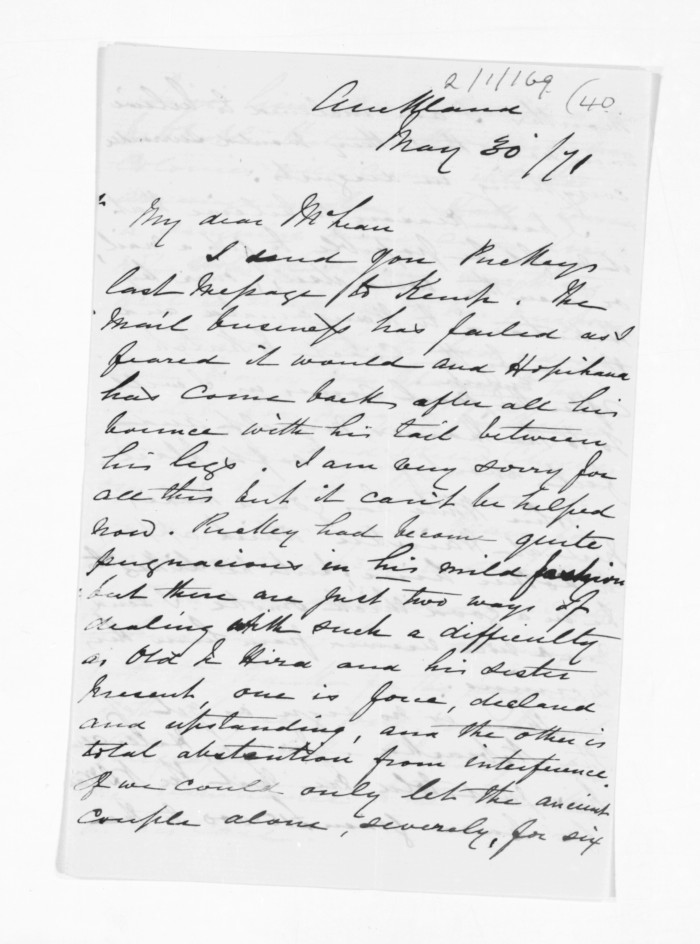 2/1/169 (40
Auckland
May 30/71
My dear McLean
I send you Puckeys
last Message to Kemp. The
Mail business has failed as I
feared it would and Hopihana
has come back after all his
bounce with his tail between
his legs. I am very sorry for
all this but it can't be helped
now. Puckey had become quite
pugnacious in his mild fashion
but there are just two ways of
dealing with such a difficulty
as Old Te Hira and his sister
present, one is force, declared
and upstanding, and the other is
total abstention from interference.
If we could only let the ancient
couple alone, severely, for six